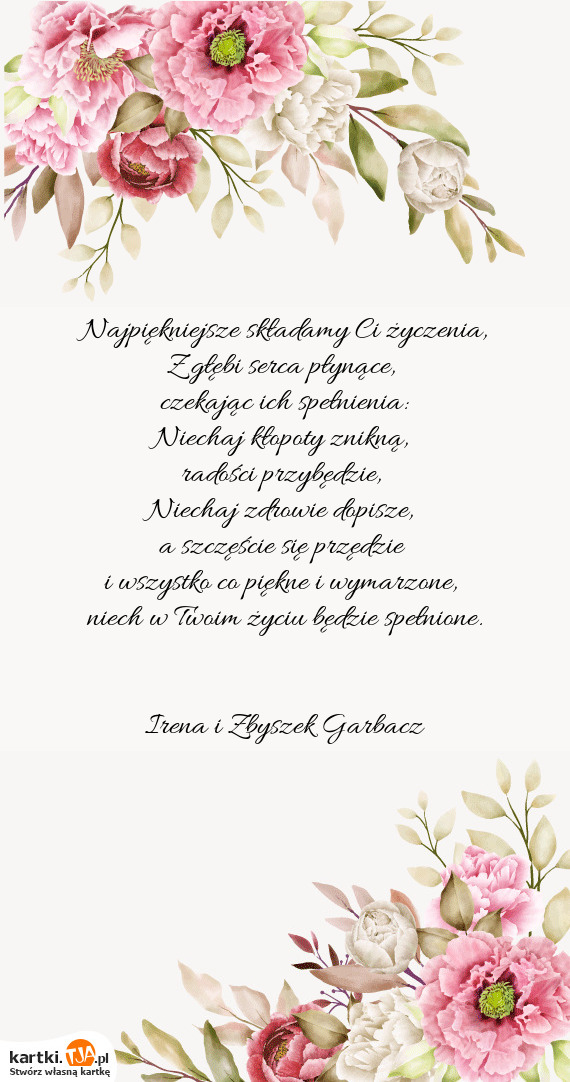 Najpiękniejsze składamy Ci życzenia,
Z głębi serca płynące,
czekając ich spełnienia:
Niechaj kłopoty znikną,
radości przybędzie,
Niechaj zdrowie dopisze,
a szczęście się przędzie
i wszystko co piękne i wymarzone,
niech w Twoim życiu będzie spełnione.
Irena i Zbyszek Garbacz
kartki.TJA.pl
Stwórz własną kartkę